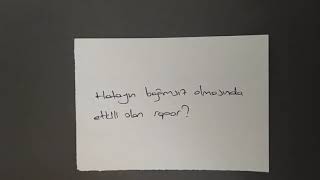 Hatayın bağımsız olmasında
etkili olan rapor?